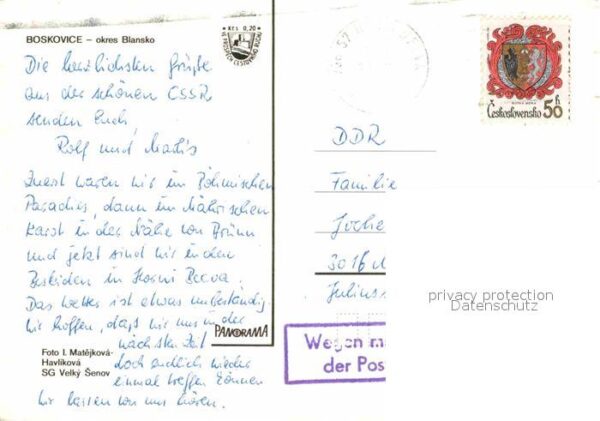 BOSKOVICE – okres Blansko
Kčs 0,20
Die herzlichsten Grüße
aus der schönen ČSSR
senden Euch,
Rolf und
Zuerst waren wir im Böhmischen
Paradies, dann im Mährischen
Karst in der Nähe von Brünn
und jetzt sind wir in den
Beskiden in Horní Bečva.
Das Wetter ist etwas unbeständig.
Wir hoffen, dass wir uns in der
nächsten Zeit
doch endlich wieder
einmal treffen können
Wir lassen von uns hören.
PANORAMA
Foto I. Matějková-
Havlíková
SG Velký Šenov
Československo 50 h
DDR
Familie
Joche
3016 M
Julius
privacy protection
Datenschutz
Wegen m
der Pos